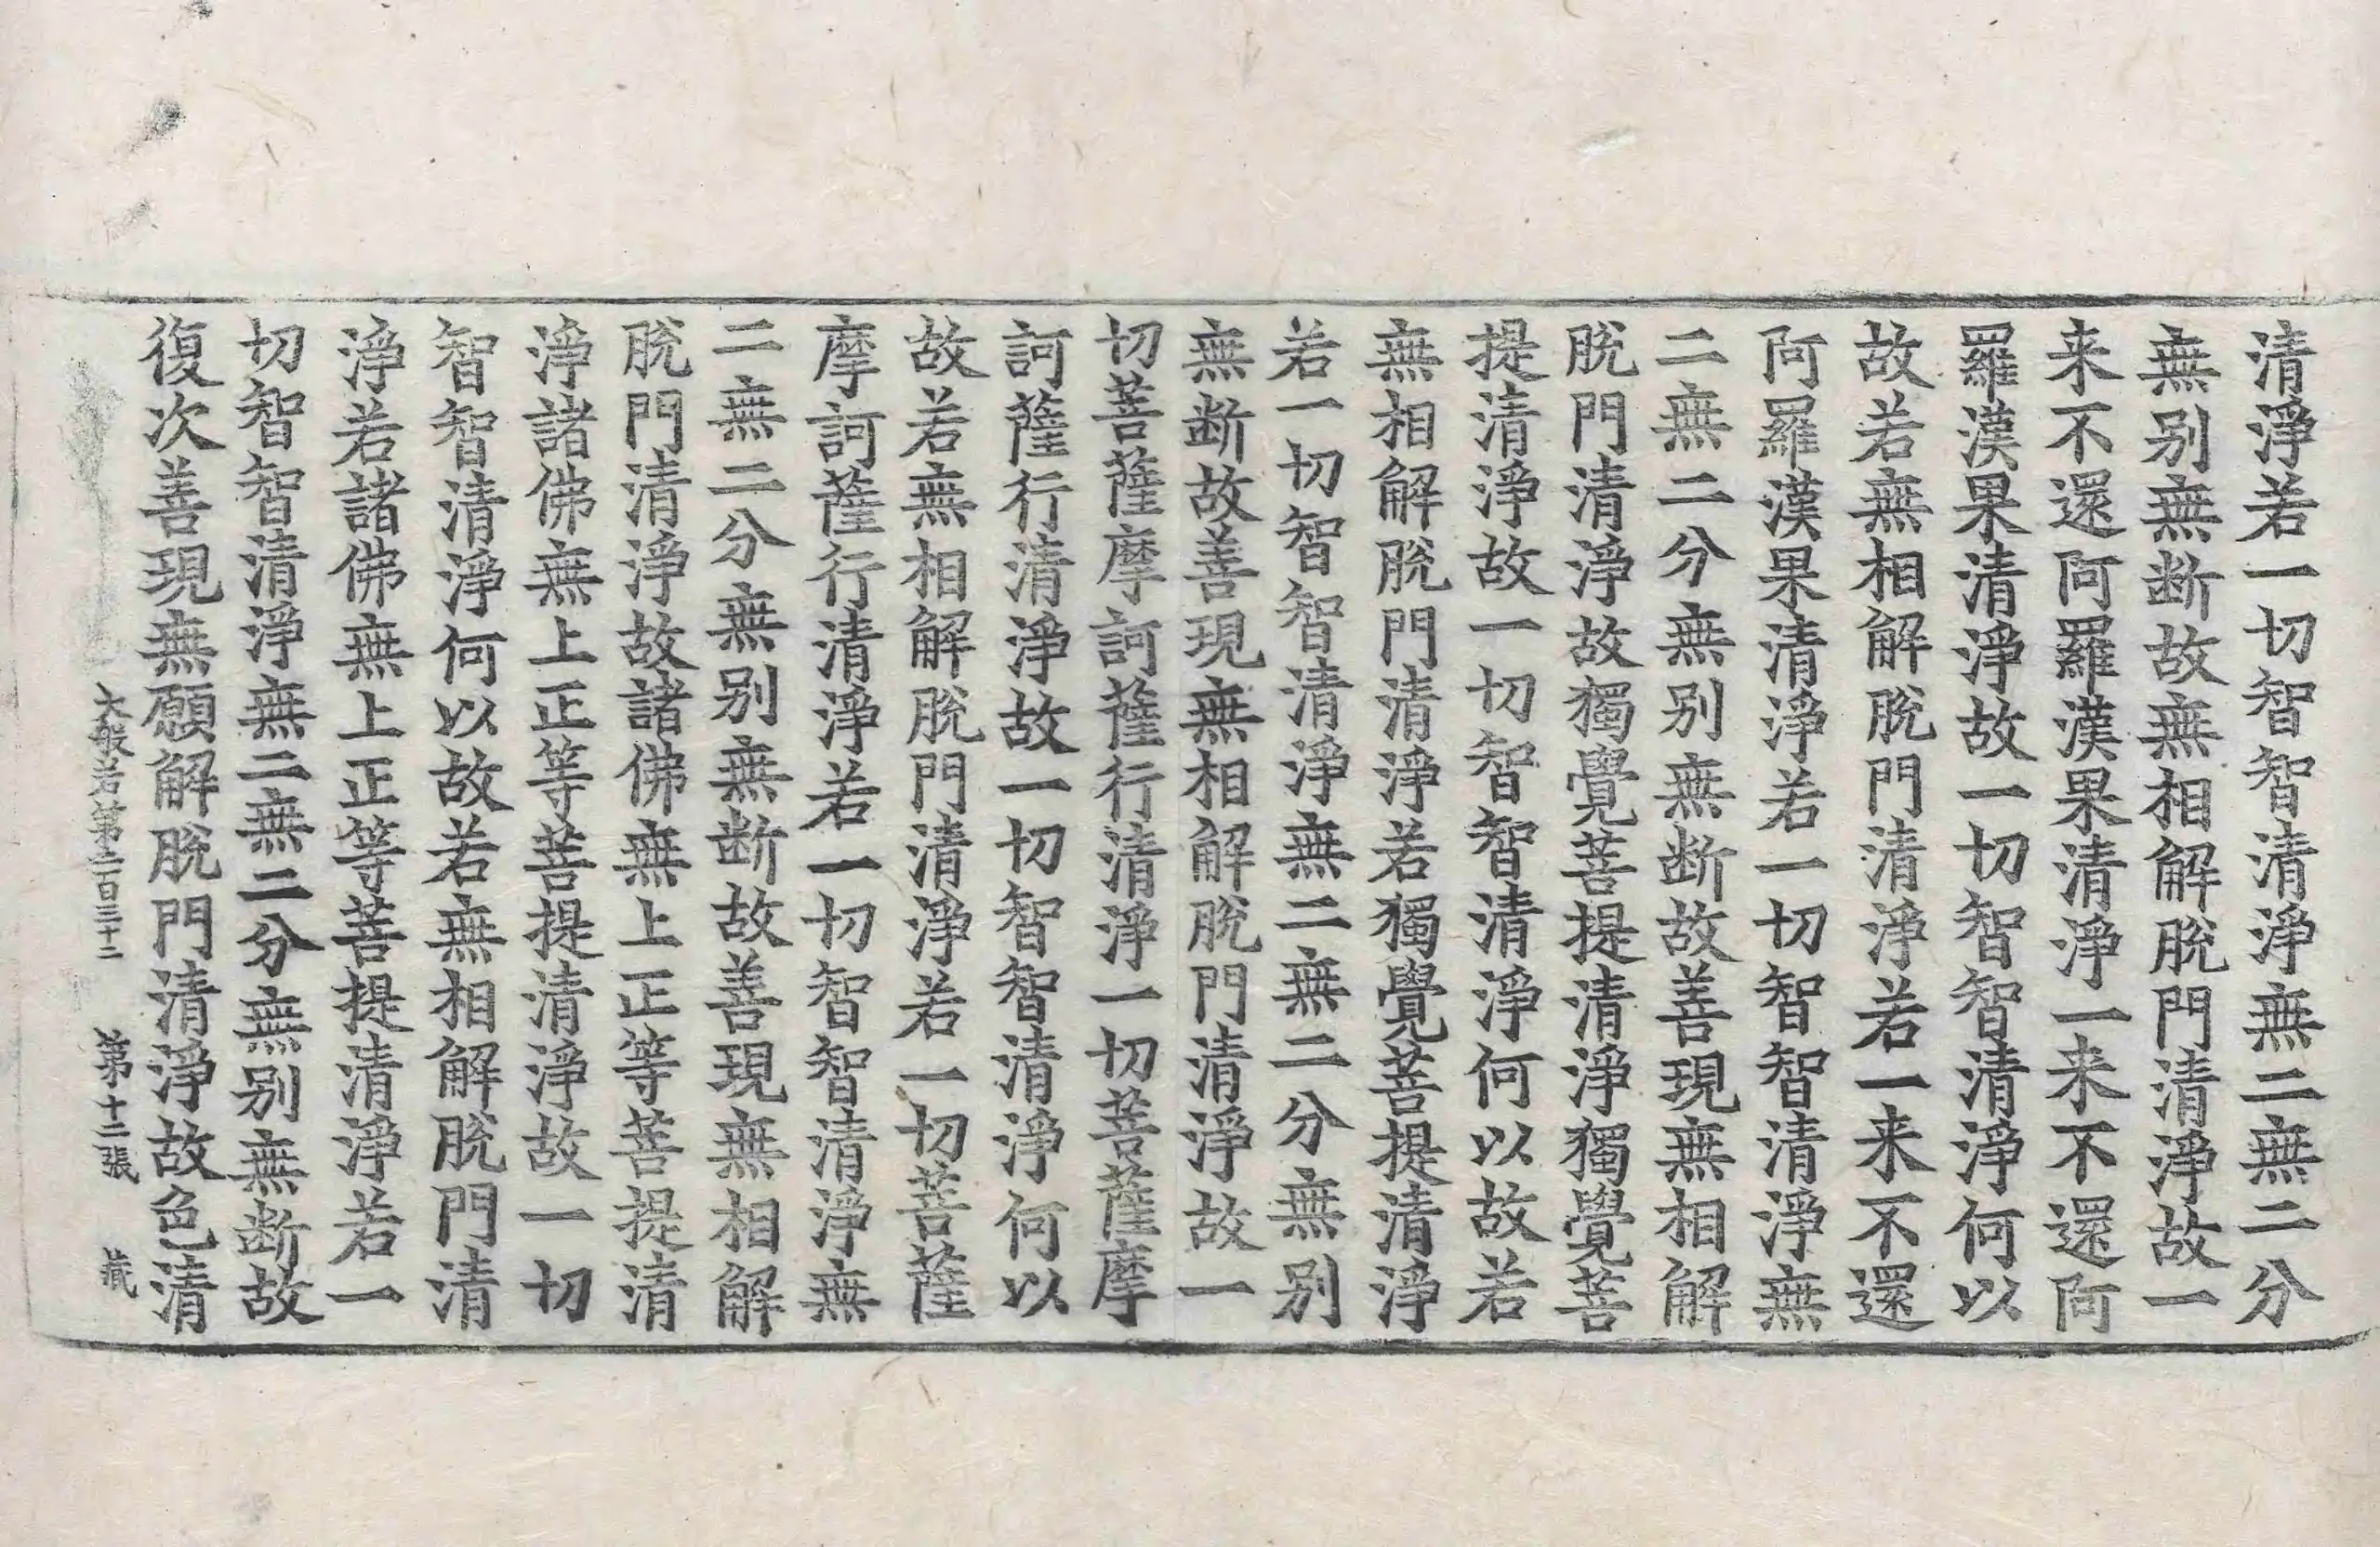 清淨若一切智智清淨無二無二分
無别無断故無相解脫門清淨故一
来不還阿羅漢果清淨一来不還阿
羅漢果清淨故一切智智清淨何以
故若無相解脫門清淨若一来不還
阿羅漢果清淨若一切智智清淨無
二無二分無别無断故善現無相解
脫門清淨故獨覺菩提清淨獨覺菩
提清淨故一切智智清淨何以故若
無相解脫門清淨若獨覺菩提清淨
若一切智智清淨無二無二分無别
無断故善現無相解脫門清淨故一
切菩薩摩訶薩行清淨一切菩薩摩
訶薩行清淨故一切智智清淨何以
故若無相解脫門清淨若一切菩薩
摩訶薩行清淨若一切智智清淨無
二無二分無别無断故善現無相解
脫門清淨故諸佛無上正等菩提清
淨諸佛無上正等菩提清淨故一切
智智清淨何以故若無相解脫門清
淨若諸佛無上正等菩提清淨若一
切智智清淨無二無二分無别無断故
復次善現無願解脫門清淨故色清
大般若第二百三十二 第十二張 藏